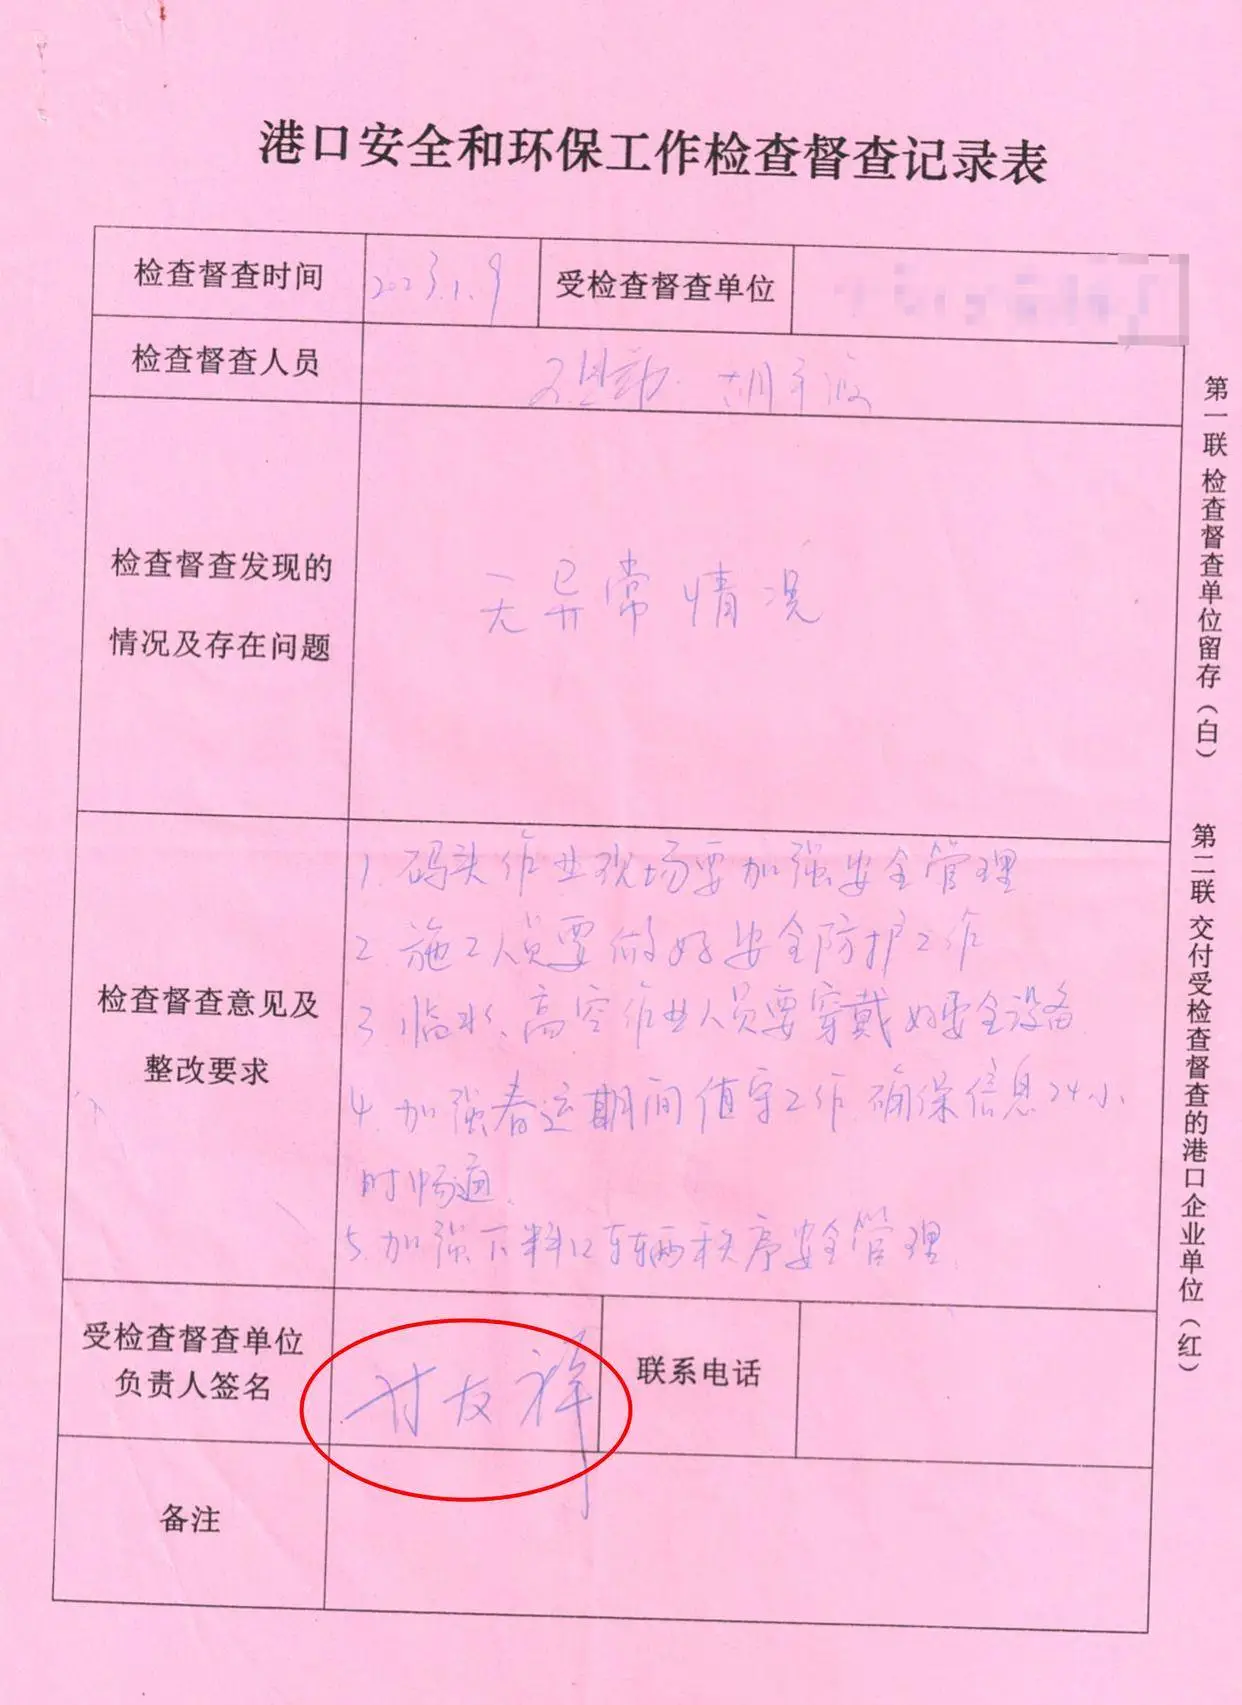 港口安全和环保工作检查督查记录表
检查督查时间 2023.1.9 受检查督查单位
检查督查人员
检查督查发现的
情况及存在问题
无异常情况
检查督查意见及
整改要求
1.码头作业现场要加强安全管理
2.施工人员要做好安全防护工作
3.临水、高空作业人员要穿戴好安全设备
4.加强春运期间值守工作,确保信息24小
时畅通.
5.加强下料口车辆秩序安全管理
受检查督查单位
负责人签名
付友祥
联系电话
备注
第一联 检查督查单位留存(白)
第二联 交付受检查督查的港口企业单位(红)